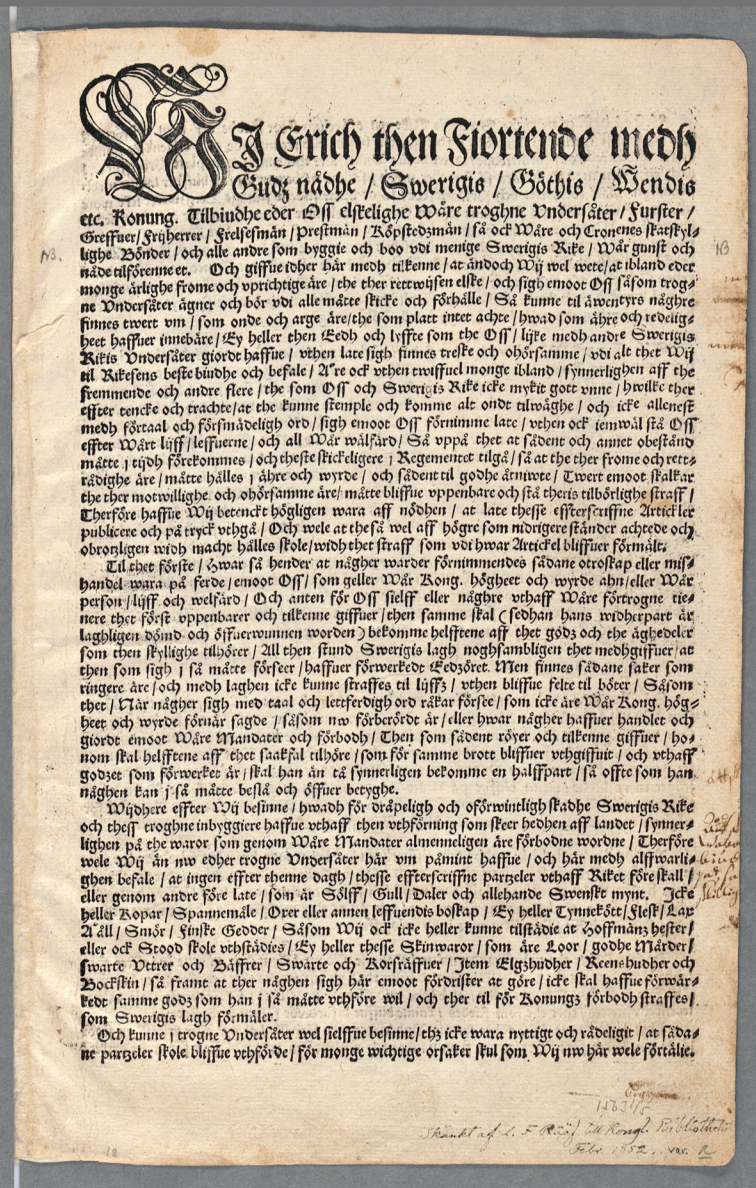 WIJ Erich then Fiortende medh
Gudz nådhe / Swerigis / Göthis / Wendis
etc. Konung. Tilbiudhe eder Oss elskelighe Wåre troghne Vndersåter / Furster /
Greffuer / Frijherrer / Frelsesmän / Prestmän / Köpstedzmän / så ock Wåre och Cronenes skatskyl-
lighe Bönder / och alle andre som byggie och boo vdi menige Swerigis Rike / Wår gunst och
nåde tilförenne et. Och giffue idher här medh tilkenne / at ändoch Wij wel wete / at ibland eder
monge ärlighe frome och vprichtige äre / the ther rettwijsen elske / och sigh emoot Oss såsom trog-
ne Vndersåter ägner och bör vdi alle måtte skicke och förhålle / Så kunne til äwentyrs näghre
finnes twert vm / som onde och arge äre / the som platt intet achte / hwad som ähre och redelig-
heet haffuer innebäre / Ey heller then Eedh och lyffte som the Oss / lijke medh andre Swerigis
Rikis Vndersåter giordt haffue / vthen late sigh finnes treske och ohörsamme / vdi alt thet Wij
til Rikesens beste biudhe och befale / Äre ock vthen twiffuel monge ibland / synnerlighen aff the
fremmende och andre flere / the som Oss och Swerigis Rike icke mykit gott vnne / hwilke ther
effter tencke och trachte / at the kunne stemple och komme alt ondt tilwäghe / och icke allenest
medh förtaal och försmådeligh ord / sigh emoot Oss förnimme late / vthen ock iemwäl stå Oss
effter Wårt lijff / leffuerne / och all Wår wälfärd / Så vppå thet at sådent och annet obestånd
måtte j tijdh förekommes / och theste skickeligere j Regementet tilgå / så at the ther frome och rett-
rådighe äre / måtte hålles j ähre och wyrde / och sådent til godhe åtniwte / Twert emoot skalkar
the ther motwillighe och ohörsamme äre / måtte bliffue vppenbare och stå theris tilbörlighe straff /
Therföre haffue Wij betenckt högligen wara aff nödhen / at late thesse effterscriffne Artickler
publicere och på tryck vthgå / Och wele at the så wel aff högre som nidrigere ständer achtede och
obrotzligen widh macht hålles skole / widh thet straff som vdi hwar Artickel bliffuer förmält.
Til thet förste / Hwar så hender at någher warder förnimmendes sådane otroskap eller mis-
handel wara på ferde / emoot Oss / som geller Wår Kong. högheet och wyrde ahn / eller Wår
person / lijff och welfärd / Och anten för Oss sielff eller näghre vthaff Wåre förtrogne tie-
nere thet först vppenbarer och tilkenne giffuer / then samme skal (sedhan hans widherpart är
laghligen dömd och öffuerwunnen worden) bekomme helfftene aff thet godz och the äghedeler
som then skyllighe tilhörer / All then stund Swerigis lagh noghsambligen thet medhgiffuer / at
then som sigh j så måtte förseer / haffuer förwerkedt Eedzöret. Men finnes sådane saker som
ringere äre / och medh laghen icke kunne straffes til lijffz / vthen bliffue felte til böter / Såsom
thet / När någher sigh med taal och lettferdigh ord råkar försee / som icke äre Wår Kong. hög-
heet och wyrde förnär sagde / såsom nw förberördt är / eller hwar någher haffuer handlet och
giordt emoot Wåre Mandater och förbodh / Then som sådent röyer och tilkenne giffuer / ho-
nom skal helfftenen aff thet saakfal tilhöre / som för samme brott bliffuer vthgiffuit / och vthaff
godzet som förwerket är / skal han än tå synnerligen bekomme en halffpart / så offte som han
någhen kan j så måtte beslå och öffuer betyghe.
Wijdhere effter Wij besinne / hwadh för dråpeligh och oförwintligh skadhe Swerigis Rike
och thess troghne inbyggiere haffue vthaff then vthförning som skeer hedhen aff landet / synner-
lighen på the waror som genom Wåre Mandater almenneligen äre förbodne wordne / Therföre
wele Wij än nw edher trogne Vndersåter här vm påmint haffue / och här medh alffwarli-
ghen befale / at ingen effter thenne dagh / thesse effterscriffne partzeler vthaff Riket föreskall /
eller genom andre före late / som är Sölff / Gull / Daler och allehande Swenskt mynt. Icke
heller Kopar / Spannemåle / Oxer eller annen leffuendis boskap / Ey heller Tynnekött / Flesk / Lax
Ääll / Smör / Finske Gedder / Såsom Wij ock icke heller kunne tilstädie at Hoffmänz hester /
eller ock Stood skole vthstädies / Ey heller thesse Skinwaror / som äre Loor / godhe Mårder /
swarte Vttrer och Bäffrer / Swarte och Korsräffuer / Item Elgzhudher / Reenshudher och
Bockskin / så framt at ther någhen sigh här emoot fördrister at göre / icke skal haffue förwär-
kedt samme godz som han j så måtte vthföre wil / och ther til för Konungz förbodh straffes /
som Swerigis lagh förmäler.
Och kunne j trogne Vndersåter wel sielffue besinne / thz icke wara nyttigt och rådeligit / at såda-
ne partzeler skole bliffue vthförde / för monge wichtige orsaker skul som Wij nw här wele förtälie.
Skänkt af L. F. Rääf till Kongl. Bibliotheket
Febr. 1852. var. A